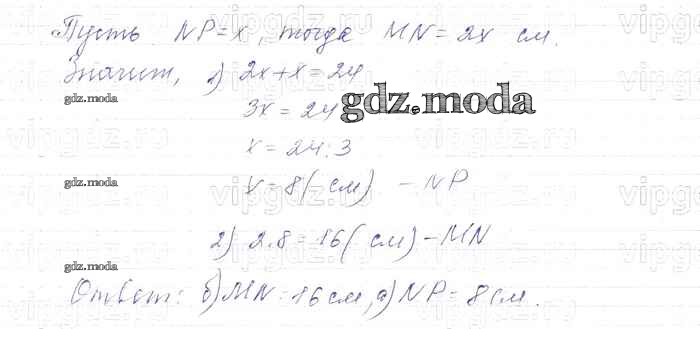 Пусть NP=x, тогда MN=2x см.
Значит, 1) 2x+x=24
gdz.moda
3x=24
gdz.moda
x=24:3
gdz.moda
x=8(см) - NP
2) 2·8=16(см)-MN
gdz.moda
Ответ: б) MN=16см, а) NP=8см.